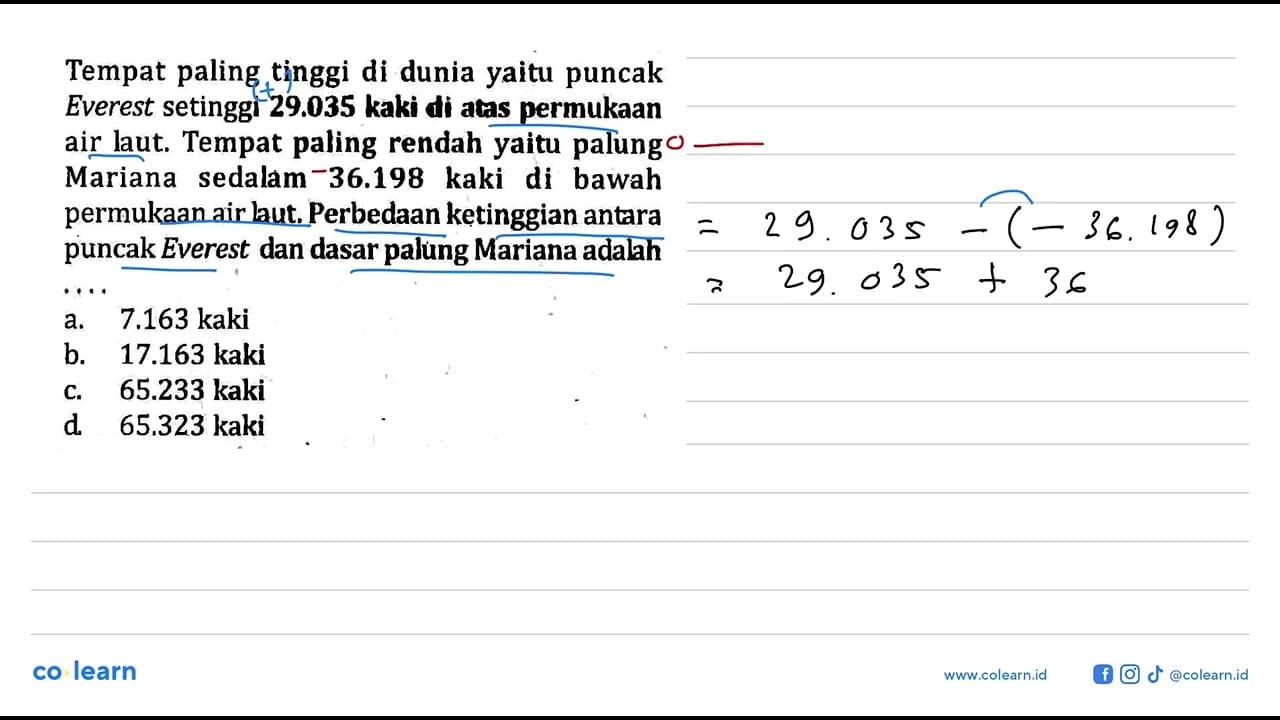 Tempat paling tinggi di dunia yaitu puncak
(+)
Everest setinggi 29.035 kaki di atas permukaan
air laut. Tempat paling rendah yaitu palung
0
Mariana sedalam -36.198 kaki di bawah
permukaan air laut. Perbedaan ketinggian antara
puncak Everest dan dasar palung Mariana adalah
....
a. 7.163 kaki
b. 17.163 kaki
c. 65.233 kaki
d. 65.323 kaki
= 29.035 - (- 36.198)
= 29.035 + 36
co learn
www.colearn.id
@colearn.id